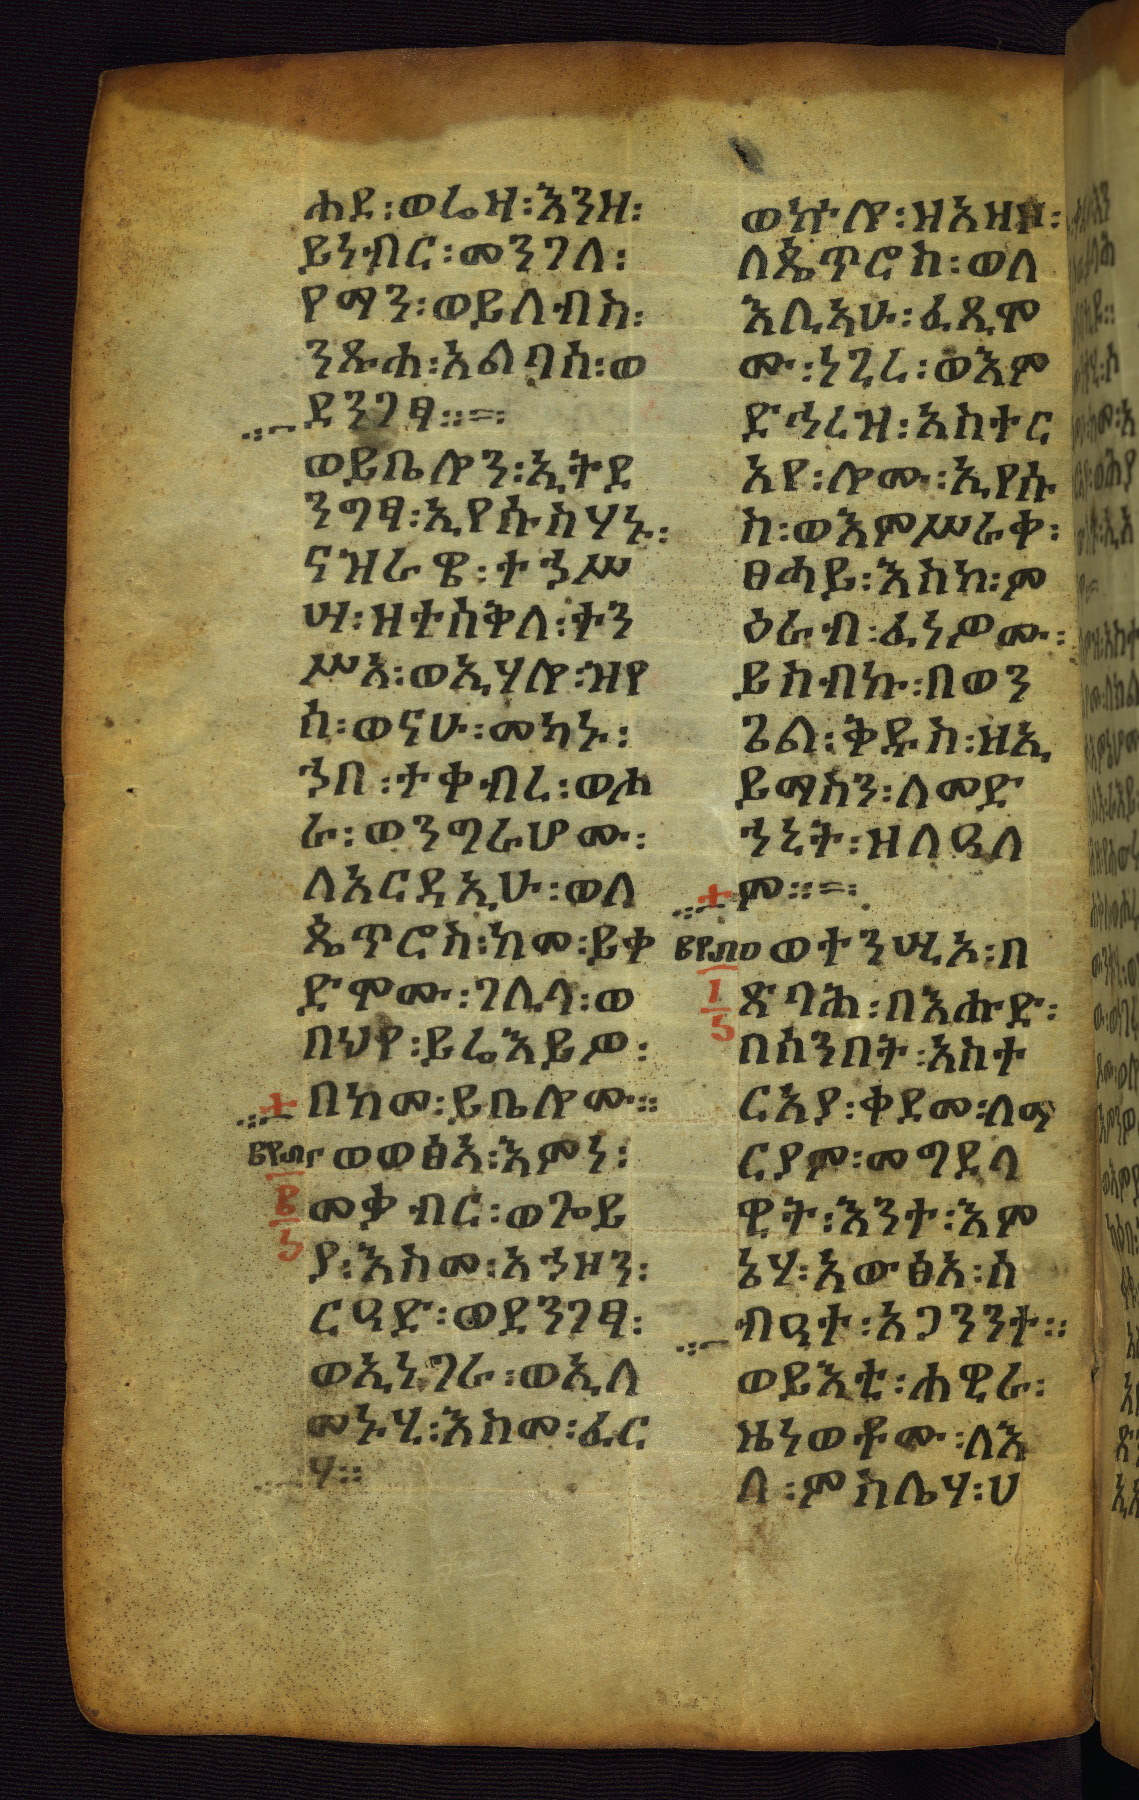 ሐደ፡ወሬዛ፡እንዘ፡
ይነብር፡መንገለ፡
የማን፡ወይለብስ፡
ንጹሐ፡አልባሰ፡ወ
ደንገፃ።=፡
ወይቤሎን፡ኢትደ
ንግፃ፡ኢየሱስሃኑ፡
ናዝራዌ፡ተኀሥ
ሣ፡ዘተሰቅለ፡ተን
ሥአ፡ወኢሃሎ፡ዝየ
ሰ፡ወናሁ፡መካኑ፡
ኀበ፡ተቀብረ፡ወሐ
ራ፡ወንግራሆሙ፡
ለአርዳኢሁ፡ወለ
ጴጥሮስ፡ከመ፡ይቀ
ድሞሙ፡ገሊላ፡ወ
በህየ፡ይሬእይዎ፡
በከመ፡ይቤሎሙ።
ወወፅአ፡እምነ፡
መቃብር፡ወጐይ
ያ፡እስመ፡አኀዘን፡
ርዓድ፡ወደንገፃ፡
ወኢነገራ፡ወኢለ
መኑሂ፡እስመ፡ፈር
ሃ።
ወኵሎ፡ዘአዘዘ፡
ለጴጥሮስ፡ወለ
እሊአሁ፡ፈጺሞ
ሙ፡ነጊረ፡ወእም
ድኅረዝ፡አስተር
አየ፡ሎሙ፡ኢየሱ
ስ፡ወእምሥራቀ፡
ፀሓይ፡እስከ፡ም
ዕራብ፡ፈነዎሙ፡
ይስብኩ፡በወን
ጌል፡ቅዱስ፡ዘኢ
ይማስን፡ለመድ
ኀኒት፡ዘለዓለ
ም።=፡
ወተንሢኦ፡በ
ጽባሕ፡በእሑድ፡
በሰንበት፡አስተ
ርአያ፡ቀደመ፡ለማ
ርያም፡መግደላ
ዊት፡እንተ፡እም
ኔሃ፡አውፅአ፡ሰ
ብዓተ፡አጋንንተ።
ወይእቲ፡ሐዊራ፡
ዜነወቶሙ፡ለእ
ለ፡ምስሌሃ፡ሀ